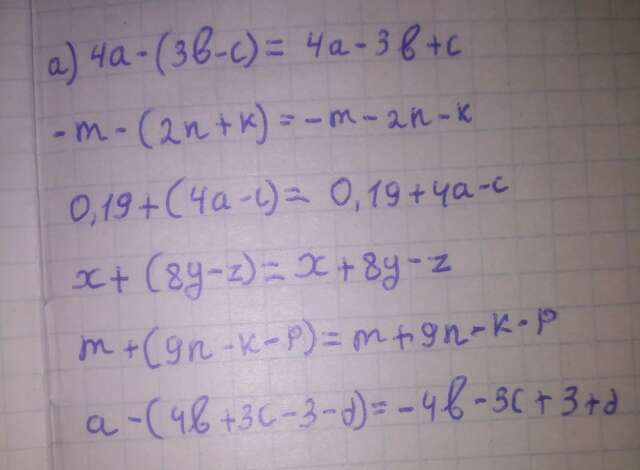 а) 4a-(3в-c)= 4a-3в+c
-m-(2n+к)=-m-2n-к
0,19+(4a-c)= 0,19+4a-c
x+(8y-z)=x+8y-z
m+(9n-к-p)=m+9n-к-p
a-(4в+3c-3-d)=-4в-3c+3+d